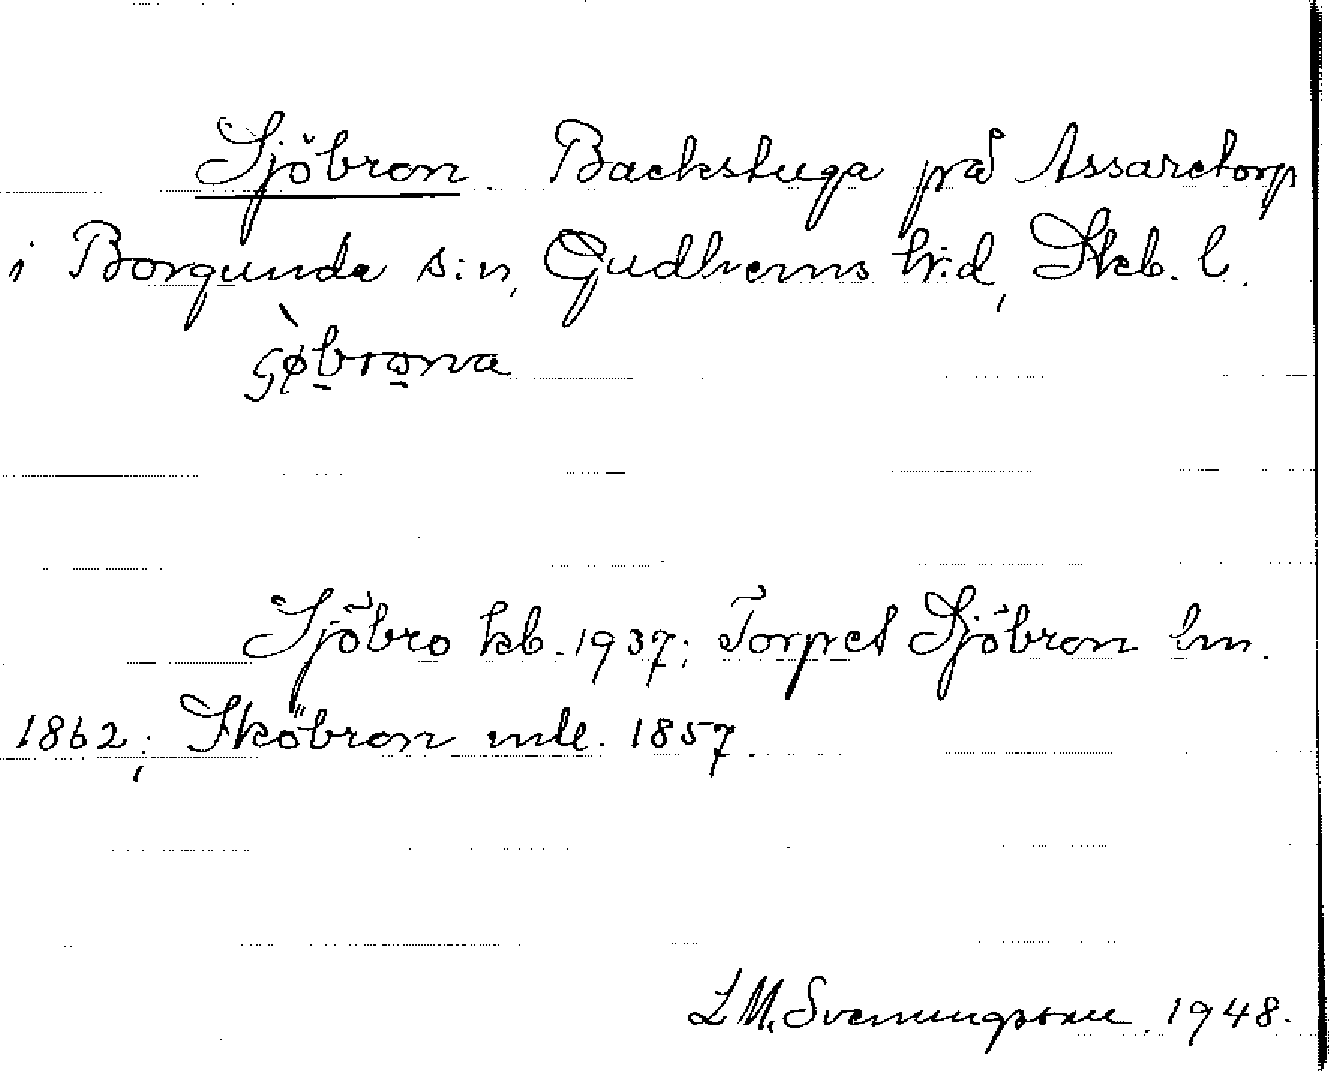 Sjöbron Backstuga på Assaretorp
i Borgunda s:n, Gudhems h:d, Skb. l.
Sjöbro kb. 1937; Torpet Sjöbron lm.
1862; Sköbron mtl. 1857.
L M. Svenungsson 1948.